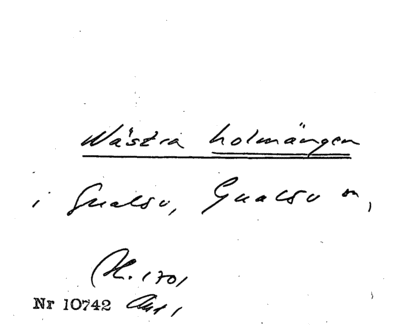 Wästra holmängen
i Gualsv, Gualsv sn,
(H. 1701
Nr 10742